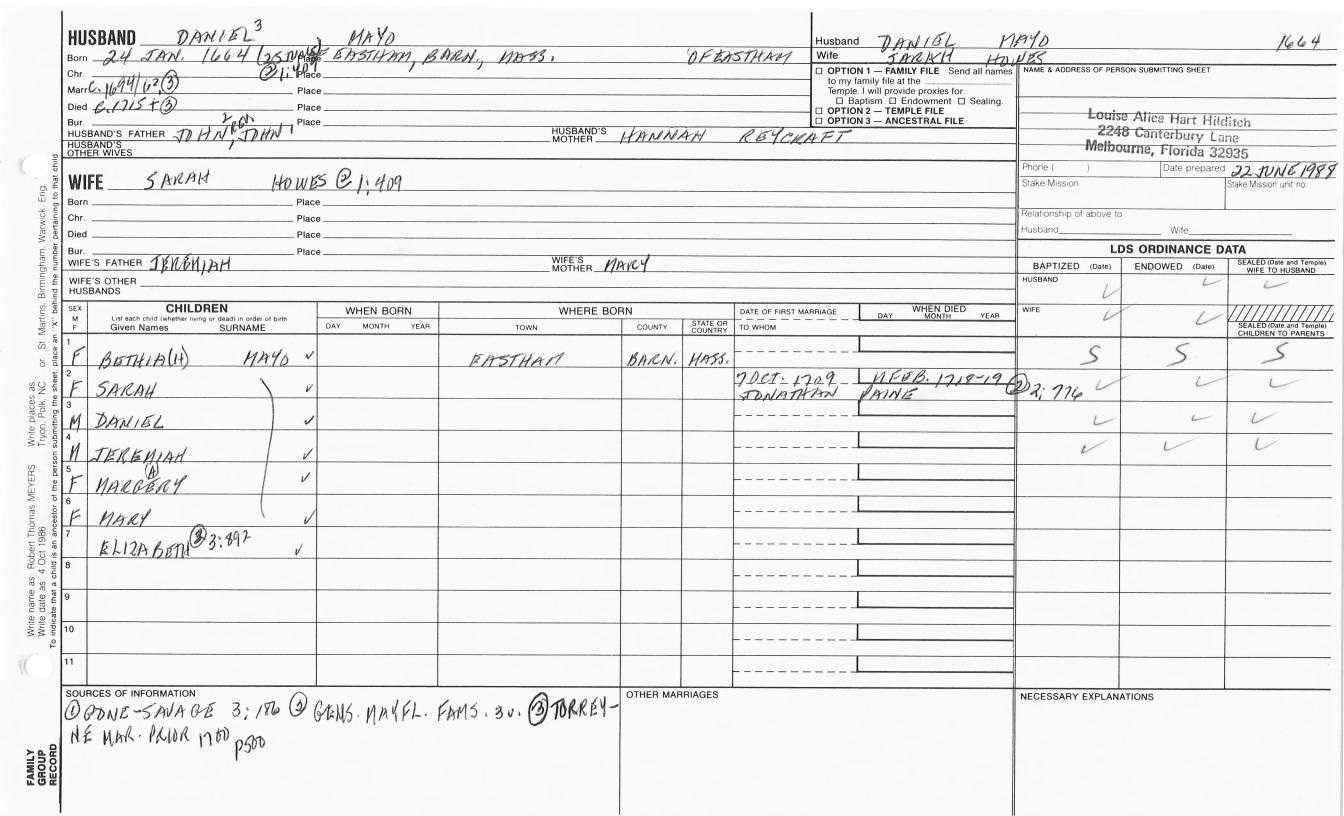 HUSBAND DANIEL 3 MAYO
Born 24 JAN. 1664 Place EASTHAM, BARN., MASS. OF EASTHAM
Chr. Place
Marr C. 1694/ ③ Place
Died C. 1715+ ③ Place
Bur. Place
HUSBAND'S FATHER JOHN 2, JOHN 1 HUSBAND'S MOTHER HANNAH REYCRAFT
HUSBAND'S OTHER WIVES
Husband DANIEL MAYO 1664
Wife SARAH HOWES
☐ OPTION 1 — FAMILY FILE Send all names
to my family file at the
Temple. I will provide proxies for:
☐ Baptism ☐ Endowment ☐ Sealing.
☐ OPTION 2 — TEMPLE FILE
☐ OPTION 3 — ANCESTRAL FILE
NAME & ADDRESS OF PERSON SUBMITTING SHEET
Louise Alice Hart Hilditch
2248 Canterbury Lane
Melbourne, Florida 32935
Phone ( ) Date prepared 22 JUNE 1988
Stake/Mission Stake/Mission unit no.
Relationship of above to
Husband Wife
WIFE SARAH HOWES @ 1; 409
Born Place
Chr. Place
Died Place
Bur. Place
WIFE'S FATHER JEREMIAH WIFE'S MOTHER MARY
WIFE'S OTHER HUSBANDS
LDS ORDINANCE DATA
BAPTIZED (Date) ENDOWED (Date) SEALED (Date and Temple) WIFE TO HUSBAND
HUSBAND ✓ ✓ ✓
WIFE ✓ ✓
SEALED (Date and Temple) CHILDREN TO PARENTS
SEX M F
CHILDREN
List each child (whether living or dead) in order of birth
Given Names SURNAME
WHEN BORN
DAY MONTH YEAR
WHERE BORN
TOWN COUNTY STATE OR COUNTRY
DATE OF FIRST MARRIAGE
TO WHOM
WHEN DIED
DAY MONTH YEAR
1 F BETHIA(H) MAYO ✓ EASTHAM BARN. MASS. S S S
2 F SARAH ✓ 7 OCT. 1709 FEB. 1718-19 ② 2; 776 ✓ ✓ ✓
JONATHAN PAINE
3 M DANIEL ✓ ✓ ✓ ✓
4 M JEREMIAH ✓ ✓ ✓ ✓
5 F MARGERY (A) ✓
6 F MARY ✓
7 ELIZABETH ② 3; 892 ✓
8
9
10
11
SOURCES OF INFORMATION
① GDNE-SAVAGE 3; 186 ② GENS. MAYFL. FAMS. 3v. ③ TORREY-
NE MAR. PRIOR 1700 p500
OTHER MARRIAGES
NECESSARY EXPLANATIONS
Write name as Robert Thomas MEYERS Write places as Tryon, Polk, NC or St Martins, Birmingham, Warwick, Eng.
Write date as 4 Oct 1986
To indicate that a child is an ancestor of the person submitting the sheet, place an "X" behind the number pertaining to that child
FAMILY
GROUP
RECORD